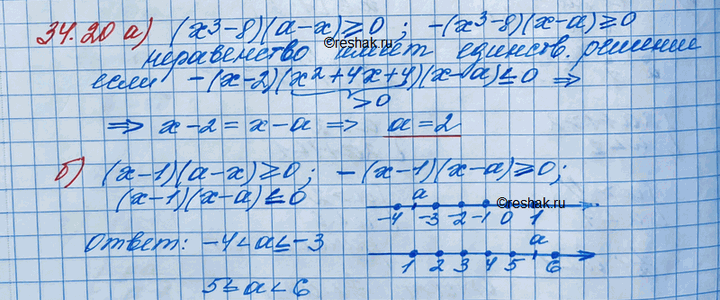 34.20 а) (x³-8)(a-x)≥0 ; -(x³-8)(x-a)≥0
©reshak.ru
неравенство имеет единств. решение
если -(x-2)(x²+4x+4)(x-a)≤0 ⇒
>0
⇒ x-2=x-a ⇒ a=2
б) (x-1)(a-x)≥0; -(x-1)(x-a)≥0;
(x-1)(x-a)≤0
a
©reshak.ru
-4 -3 -2 -1 0 1
Ответ: -4<a≤-3
a
1 2 3 4 5 6
5≤a<6